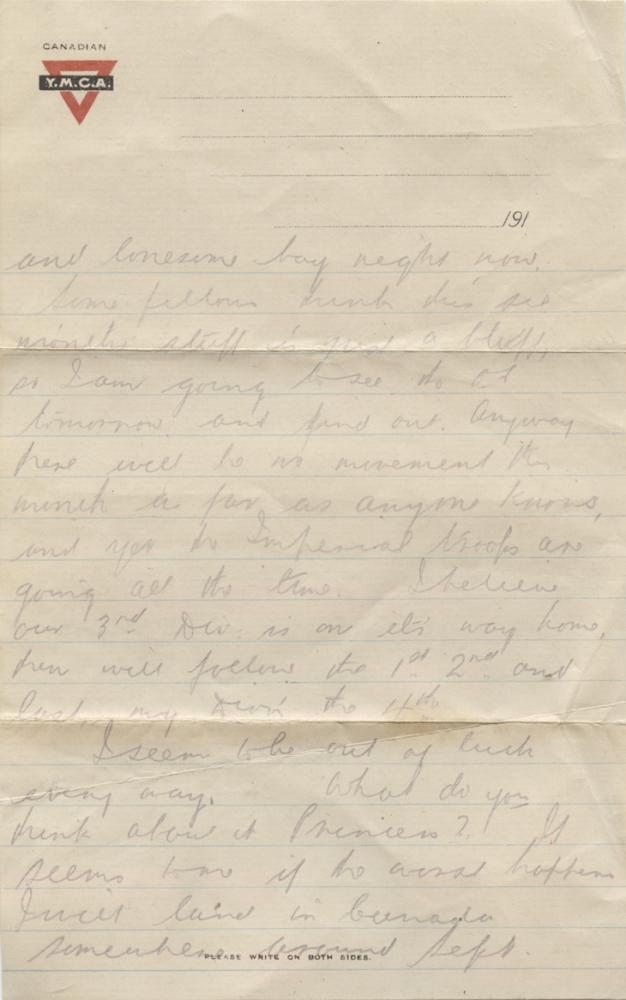 CANADIAN
Y.M.C.A.
191
and lonesome boy right now.
Some fellows think this six
months stuff is just a bluff,
so I am going to see the
tomorrow and find out. Anyway
there will be no movement this
month as far as anyone knows,
and yet the Imperial troops are
going all the time. I believe
our 3rd Div. is on its way home,
then will follow the 1st 2nd and
last, my Div'n the 4th
I seem to be out of luck
every way. What do you
think about it Princess? It
seems to me if the worst happens
I will land in Canada
somewhere around Sept.
PLEASE WRITE ON BOTH SIDES.